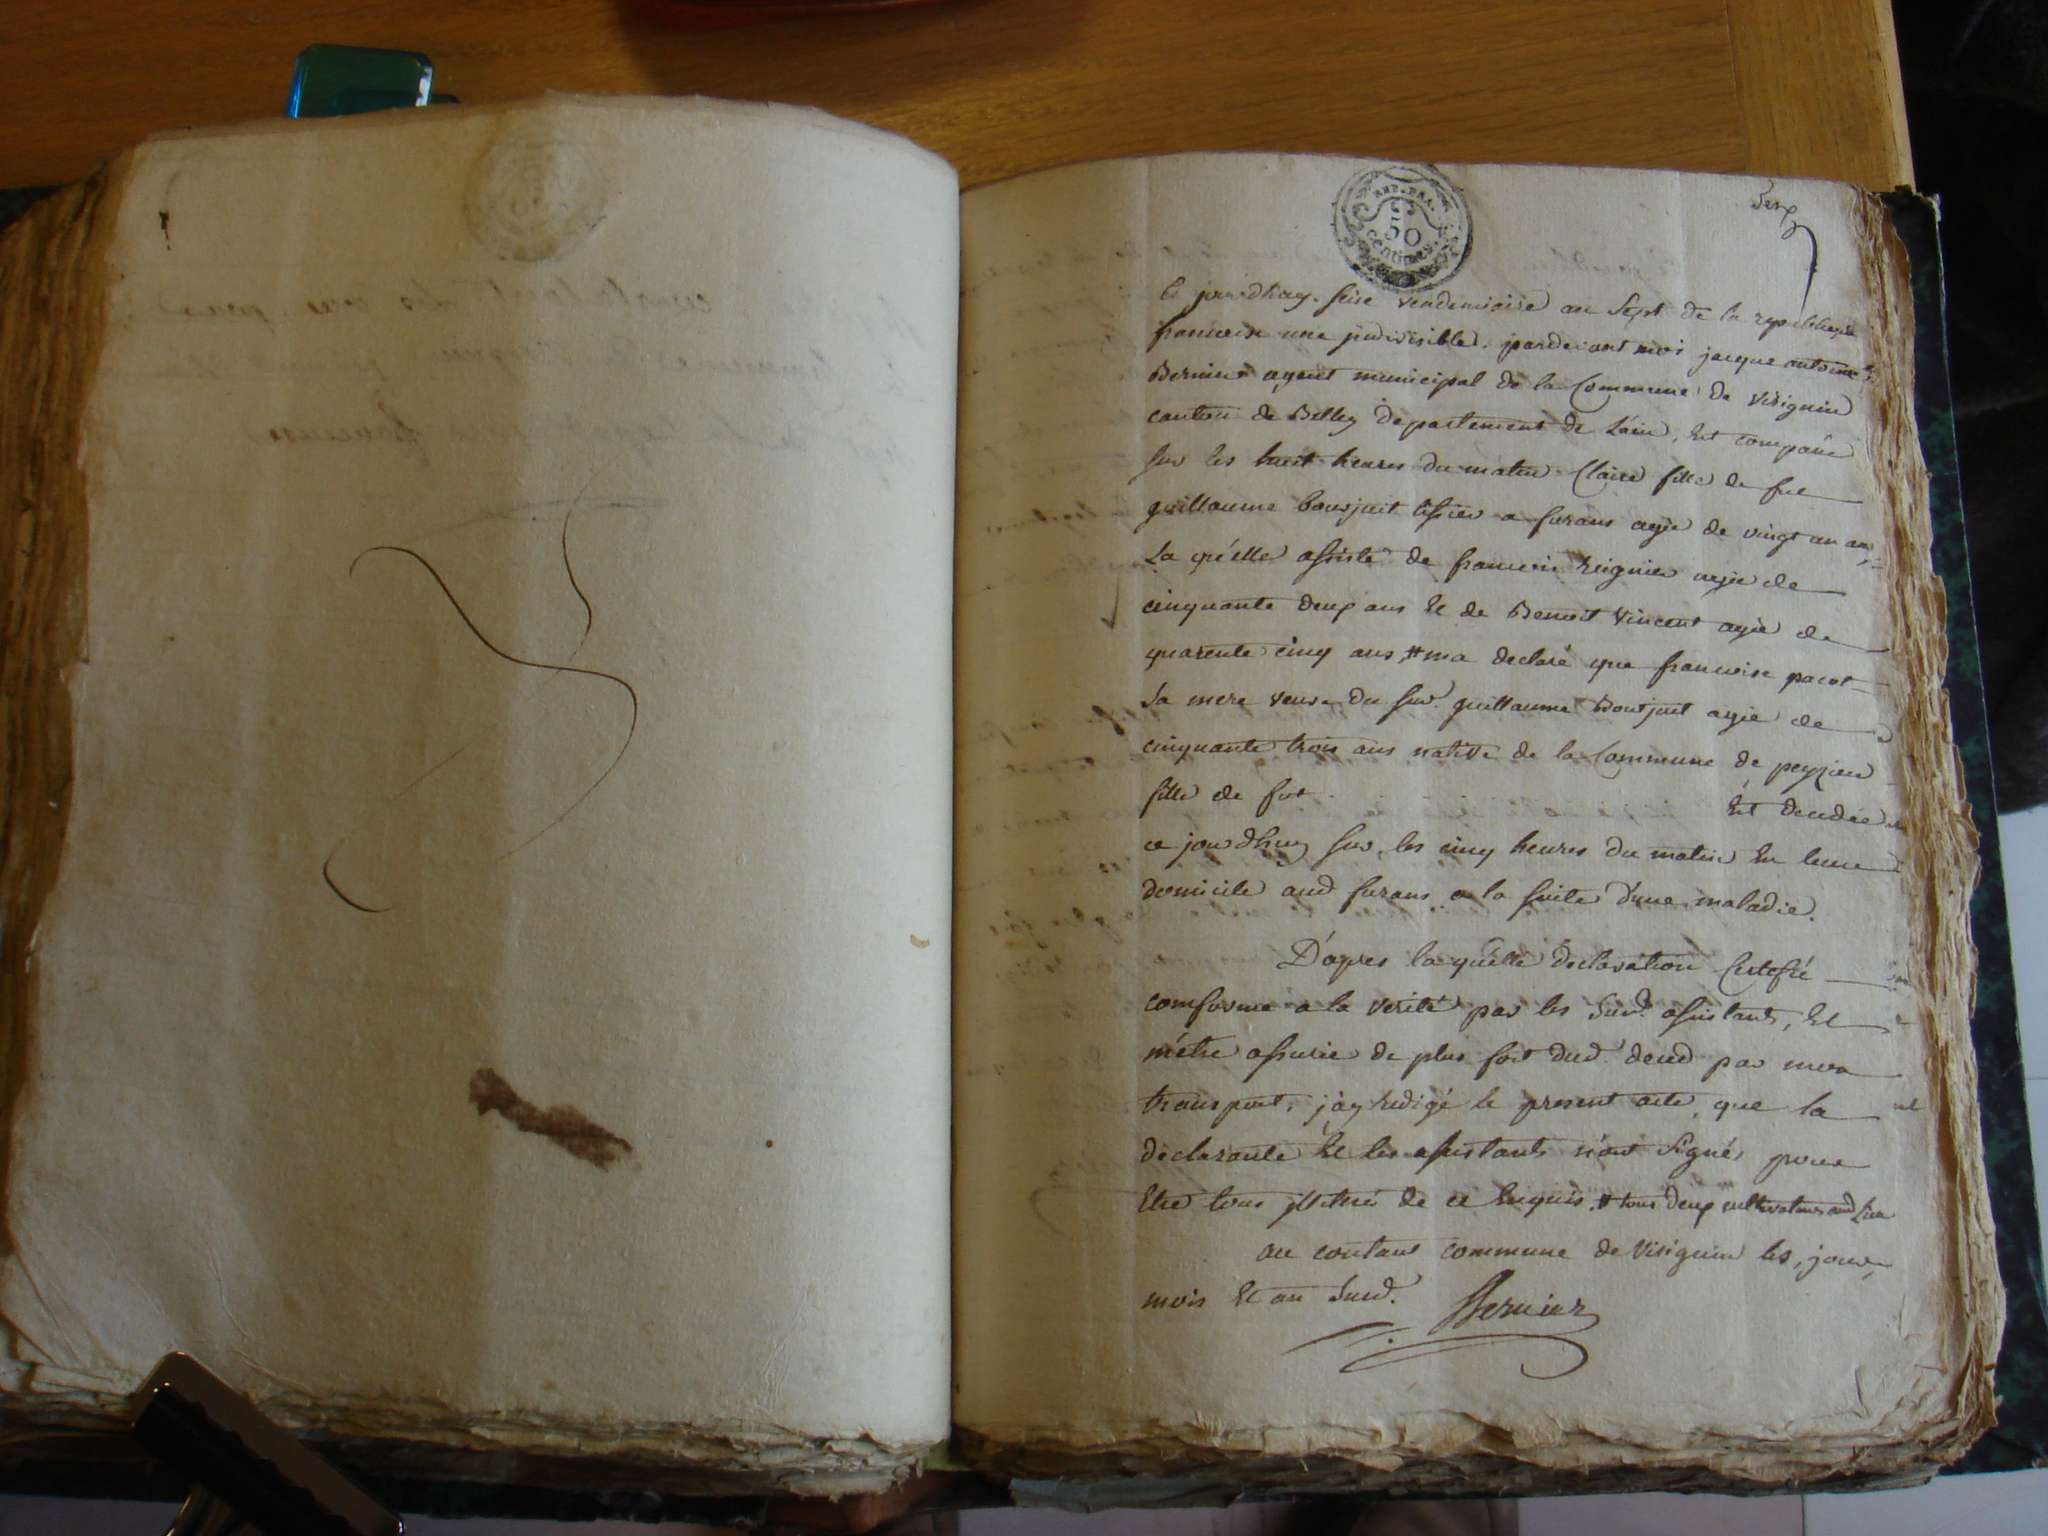 REP. FRA.
50
centimes.
Ce jourdhuy seise vendemiaire an Sept de la republique
francoise une jndivisible, pardevant moi jacque antoine
Bernier agent municipal de la Commune de virignin
canton de Belley departement de L'ain, Est comparüe
sur les huit heures du matin Claire fille de fut
guillaume boujuit tissier a furans agée de vingt un ans,
La quélle assisté de francois Reignier agée de
cinquante deux ans Et de Benoit Vincent agée de
quarente cinq ans, # ma declaré que francoise pacot
Sa mere veuve du Sud. guillaume Boutjuit agée de
cinquante trois ans native de la Commune de peyzieu
fille de fut Est decedée
ce jourdhuy sur les cinq heures du matin En leur
domicile aud furans a la suite d'une maladie.
D'apres laquélle declaration Certefié
comforme a la verité par les Surd. assistants, Et
m'étre assurée de plus fort dud. deced par mon
transport, j'ay Redigé le present acte, que la
declarante Et les assistants n'ont Signés pour
Etre tous jlletrés de ce Enquis. # tous deux cultivateurs aud Lieu
au contant commune de Virignin les, jour,
mois Et an Surd. Bernier